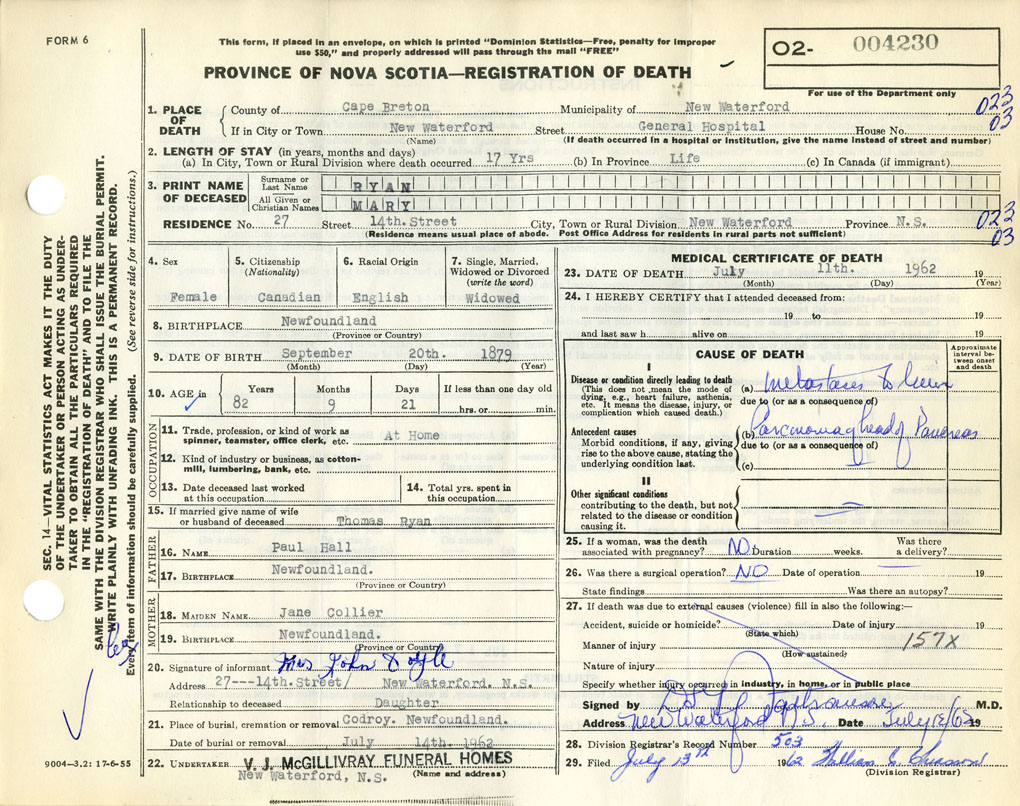 FORM 6
This form, if placed in an envelope, on which is printed "Dominion Statistics—Free, penalty for improper
use $50," and properly addressed will pass through the mail "FREE"
PROVINCE OF NOVA SCOTIA—REGISTRATION OF DEATH
O2- 004230
For use of the Department only
1. PLACE OF DEATH
County of Cape Breton Municipality of New Waterford 023
If in City or Town New Waterford Street General Hospital House No. 03
(Name) (If death occurred in a hospital or institution, give the name instead of street and number)
2. LENGTH OF STAY (in years, months and days)
(a) In City, Town or Rural Division where death occurred 17 Yrs (b) In Province Life (c) In Canada (if immigrant)
3. PRINT NAME OF DECEASED
Surname or Last Name RYAN
All Given or Christian Names MARY
RESIDENCE No. 27 Street 14th.Street City, Town or Rural Division New Waterford Province N.S. 023
(Residence means usual place of abode. Post Office Address for residents in rural parts not sufficient) 03
SEC. 14—VITAL STATISTICS ACT MAKES IT THE DUTY
OF THE UNDERTAKER OR PERSON ACTING AS UNDER-
TAKER TO OBTAIN ALL THE PARTICULARS REQUIRED
IN THE "REGISTRATION OF DEATH" AND TO FILE THE
SAME WITH THE DIVISION REGISTRAR WHO SHALL ISSUE THE BURIAL PERMIT.
WRITE PLAINLY WITH UNFADING INK. THIS IS A PERMANENT RECORD.
Every item of information should be carefully supplied. (See reverse side for instructions.)
4. Sex
Female
5. Citizenship
(Nationality)
Canadian
6. Racial Origin
English
7. Single, Married,
Widowed or Divorced
(write the word)
Widowed
8. BIRTHPLACE Newfoundland
(Province or Country)
9. DATE OF BIRTH September 20th. 1879
(Month) (Day) (Year)
10. AGE in
Years Months Days If less than one day old
82 9 21 hrs. or min.
OCCUPATION
11. Trade, profession, or kind of work as
spinner, teamster, office clerk, etc. At Home
12. Kind of industry or business, as cotton-
mill, lumbering, bank, etc.
13. Date deceased last worked
at this occupation
14. Total yrs. spent in
this occupation
15. If married give name of wife
or husband of deceased Thomas Ryan
FATHER
16. NAME Paul Hall
17. BIRTHPLACE Newfoundland.
(Province or Country)
MOTHER
18. MAIDEN NAME Jane Collier
19. BIRTHPLACE Newfoundland.
(Province or Country)
20. Signature of informant Mrs John Doyle
Address 27---14th.Street/ New Waterford, N.S.
Relationship to deceased Daughter
21. Place of burial, cremation or removal Codroy. Newfoundland.
Date of burial or removal July 14th. 1962
22. UNDERTAKER V. J. McGILLIVRAY FUNERAL HOMES
New Waterford, N.S. (Name and address)
9004—3.2: 17-6-55
MEDICAL CERTIFICATE OF DEATH
23. DATE OF DEATH July 11th. 1962 19
(Month) (Day) (Year)
24. I HEREBY CERTIFY that I attended deceased from:
19 to 19
and last saw h alive on 19
CAUSE OF DEATH
Approximate interval between onset and death
I
Disease or condition directly leading to death
(This does not mean the mode of
dying, e.g., heart failure, asthenia,
etc. It means the disease, injury, or
complication which caused death.)
(a) Metastases to liver
due to (or as a consequence of)
Antecedent causes
Morbid conditions, if any, giving
rise to the above cause, stating the
underlying condition last.
(b) Carcinoma head of Pancreas
due to (or as a consequence of)
(c)
II
Other significant conditions
contributing to the death, but not
related to the disease or condition
causing it.
25. If a woman, was the death
associated with pregnancy? NO Duration weeks. Was there
a delivery?
26. Was there a surgical operation? NO Date of operation 19
State findings Was there an autopsy?
27. If death was due to external causes (violence) fill in also the following:—
Accident, suicide or homicide? Date of injury 19
(State which)
Manner of injury 157X
(How sustained)
Nature of injury
Specify whether injury occurred in industry, in home, or in public place
Signed by M.D.
Address New Waterford N.S. Date July 12/62 19
28. Division Registrar's Record Number 503
29. Filed July 13th 1962 William
(Division Registrar)